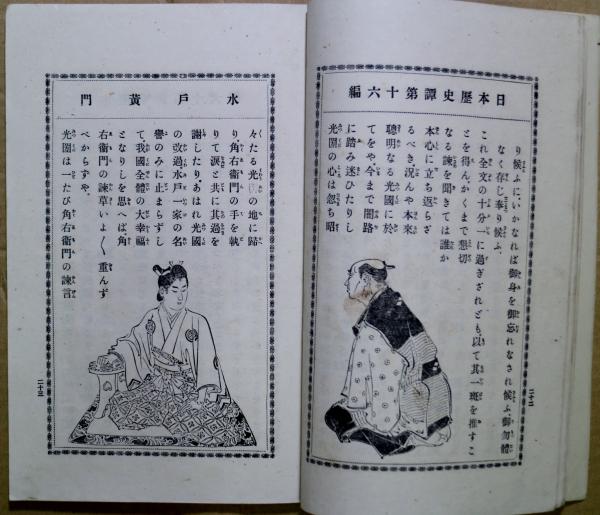 日本歷史譚第十六編
り候ふに、いかなれば御身を御忘れなされ候ふ御勿體
なく存じ奉り候ふ、
これ全文の十分一に過ぎざれども、以て其一斑を推すこ
とを得んかくまで懇切
なる諫を聞きては誰か
本心に立ち返らざ
るべき、況んや本來
聰明なる光圀に於
てをや、今まで闇路
に踏み迷ひたりし
光圀の心は忽ち昭
二十二
水戶黃門
々たる光の地に歸
り角右衞門の手を執
りて淚と共に其過を
謝したり、あはれ光圀
の改過水戶一家の名
譽のみに止まらずし
て、我國全體の大幸福
となりしを思へば角
右衞門の諫草いよ〱重んず
べからずや、
光圀は一たび角右衞門の諫言
二十三